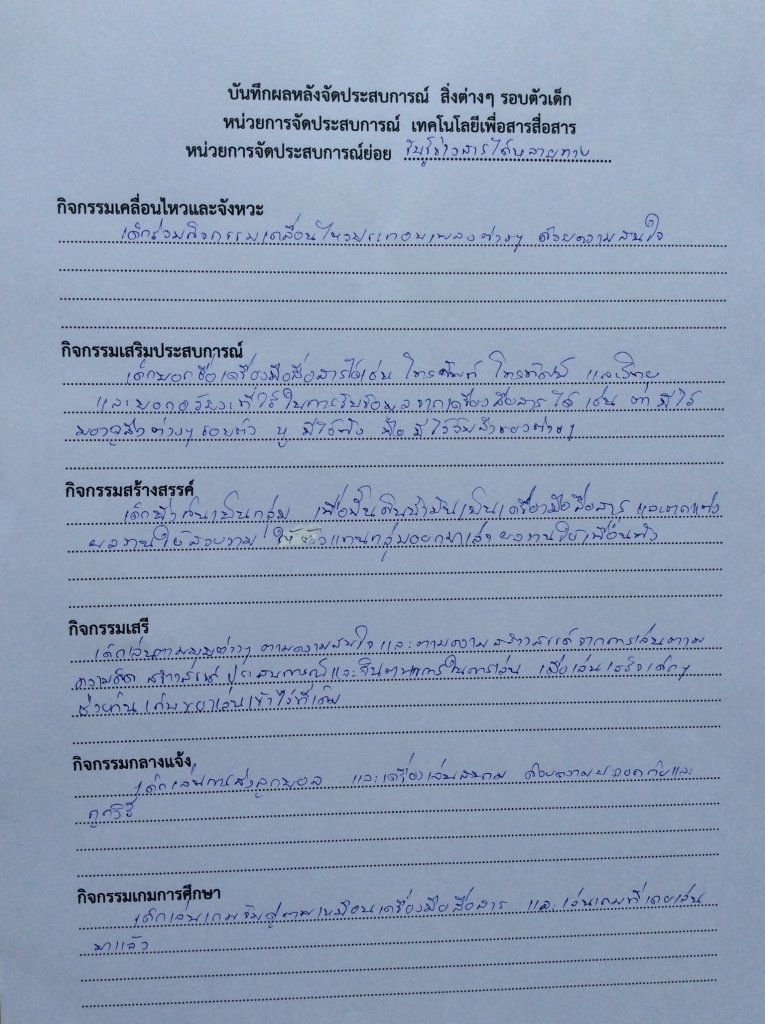 บันทึกผลหลังจัดประสบการณ์ สิ่งต่างๆ รอบตัวเด็ก
หน่วยการจัดประสบการณ์ เทคโนโลยีเพื่อสารสื่อสาร
หน่วยการจัดประสบการณ์ย่อย รับรู้ข่าวสารได้หลายทาง
กิจกรรมเคลื่อนไหวและจังหวะ
เด็กร่วมกิจกรรมเคลื่อนไหวประกอบเพลงต่างๆ ด้วยความสนใจ
กิจกรรมเสริมประสบการณ์
เด็กบอกชื่อเครื่องมือสื่อสารได้เช่น โทรศัพท์ โทรทัศน์ และวิทยุ
และบอกอวัยวะที่ใช้ในการรับข้อมูลจากเครื่องสื่อสารได้ เช่น ตา มีไว้
มองดูสิ่งต่างๆรอบตัว หู มีไว้ฟัง มือ มีไว้จับสิ่งของต่างๆ
กิจกรรมสร้างสรรค์
เด็กนั่งกันเป็นกลุ่ม เพื่อปั้นดินน้ำมันเป็นเครื่องมือสื่อสาร และตกแต่ง
ผลงานให้สวยงาม ให้ตัวแทนกลุ่มออกมาเล่าผลงานให้เพื่อนฟัง
กิจกรรมเสรี
เด็กเล่นตามมุมต่างๆ ตามความสนใจ และตามความสร้างสรรค์จากการเล่นตาม
ความคิด สร้างสรรค์ ประสบการณ์และจินตนาการในการเล่น เมื่อเล่นเสร็จเด็กๆ
ช่วยกันเก็บของเล่นเข้าไว้ที่เดิม
กิจกรรมกลางแจ้ง
เด็กเล่นการส่งลูกบอล และเครื่องเล่นสนาม ด้วยความปลอดภัยและ
ถูกวิธี
กิจกรรมเกมการศึกษา
เด็กเล่นเกมจับคู่ภาพเหมือนเครื่องมือสื่อสาร และเล่นเกมที่เคยเล่น
มาแล้ว